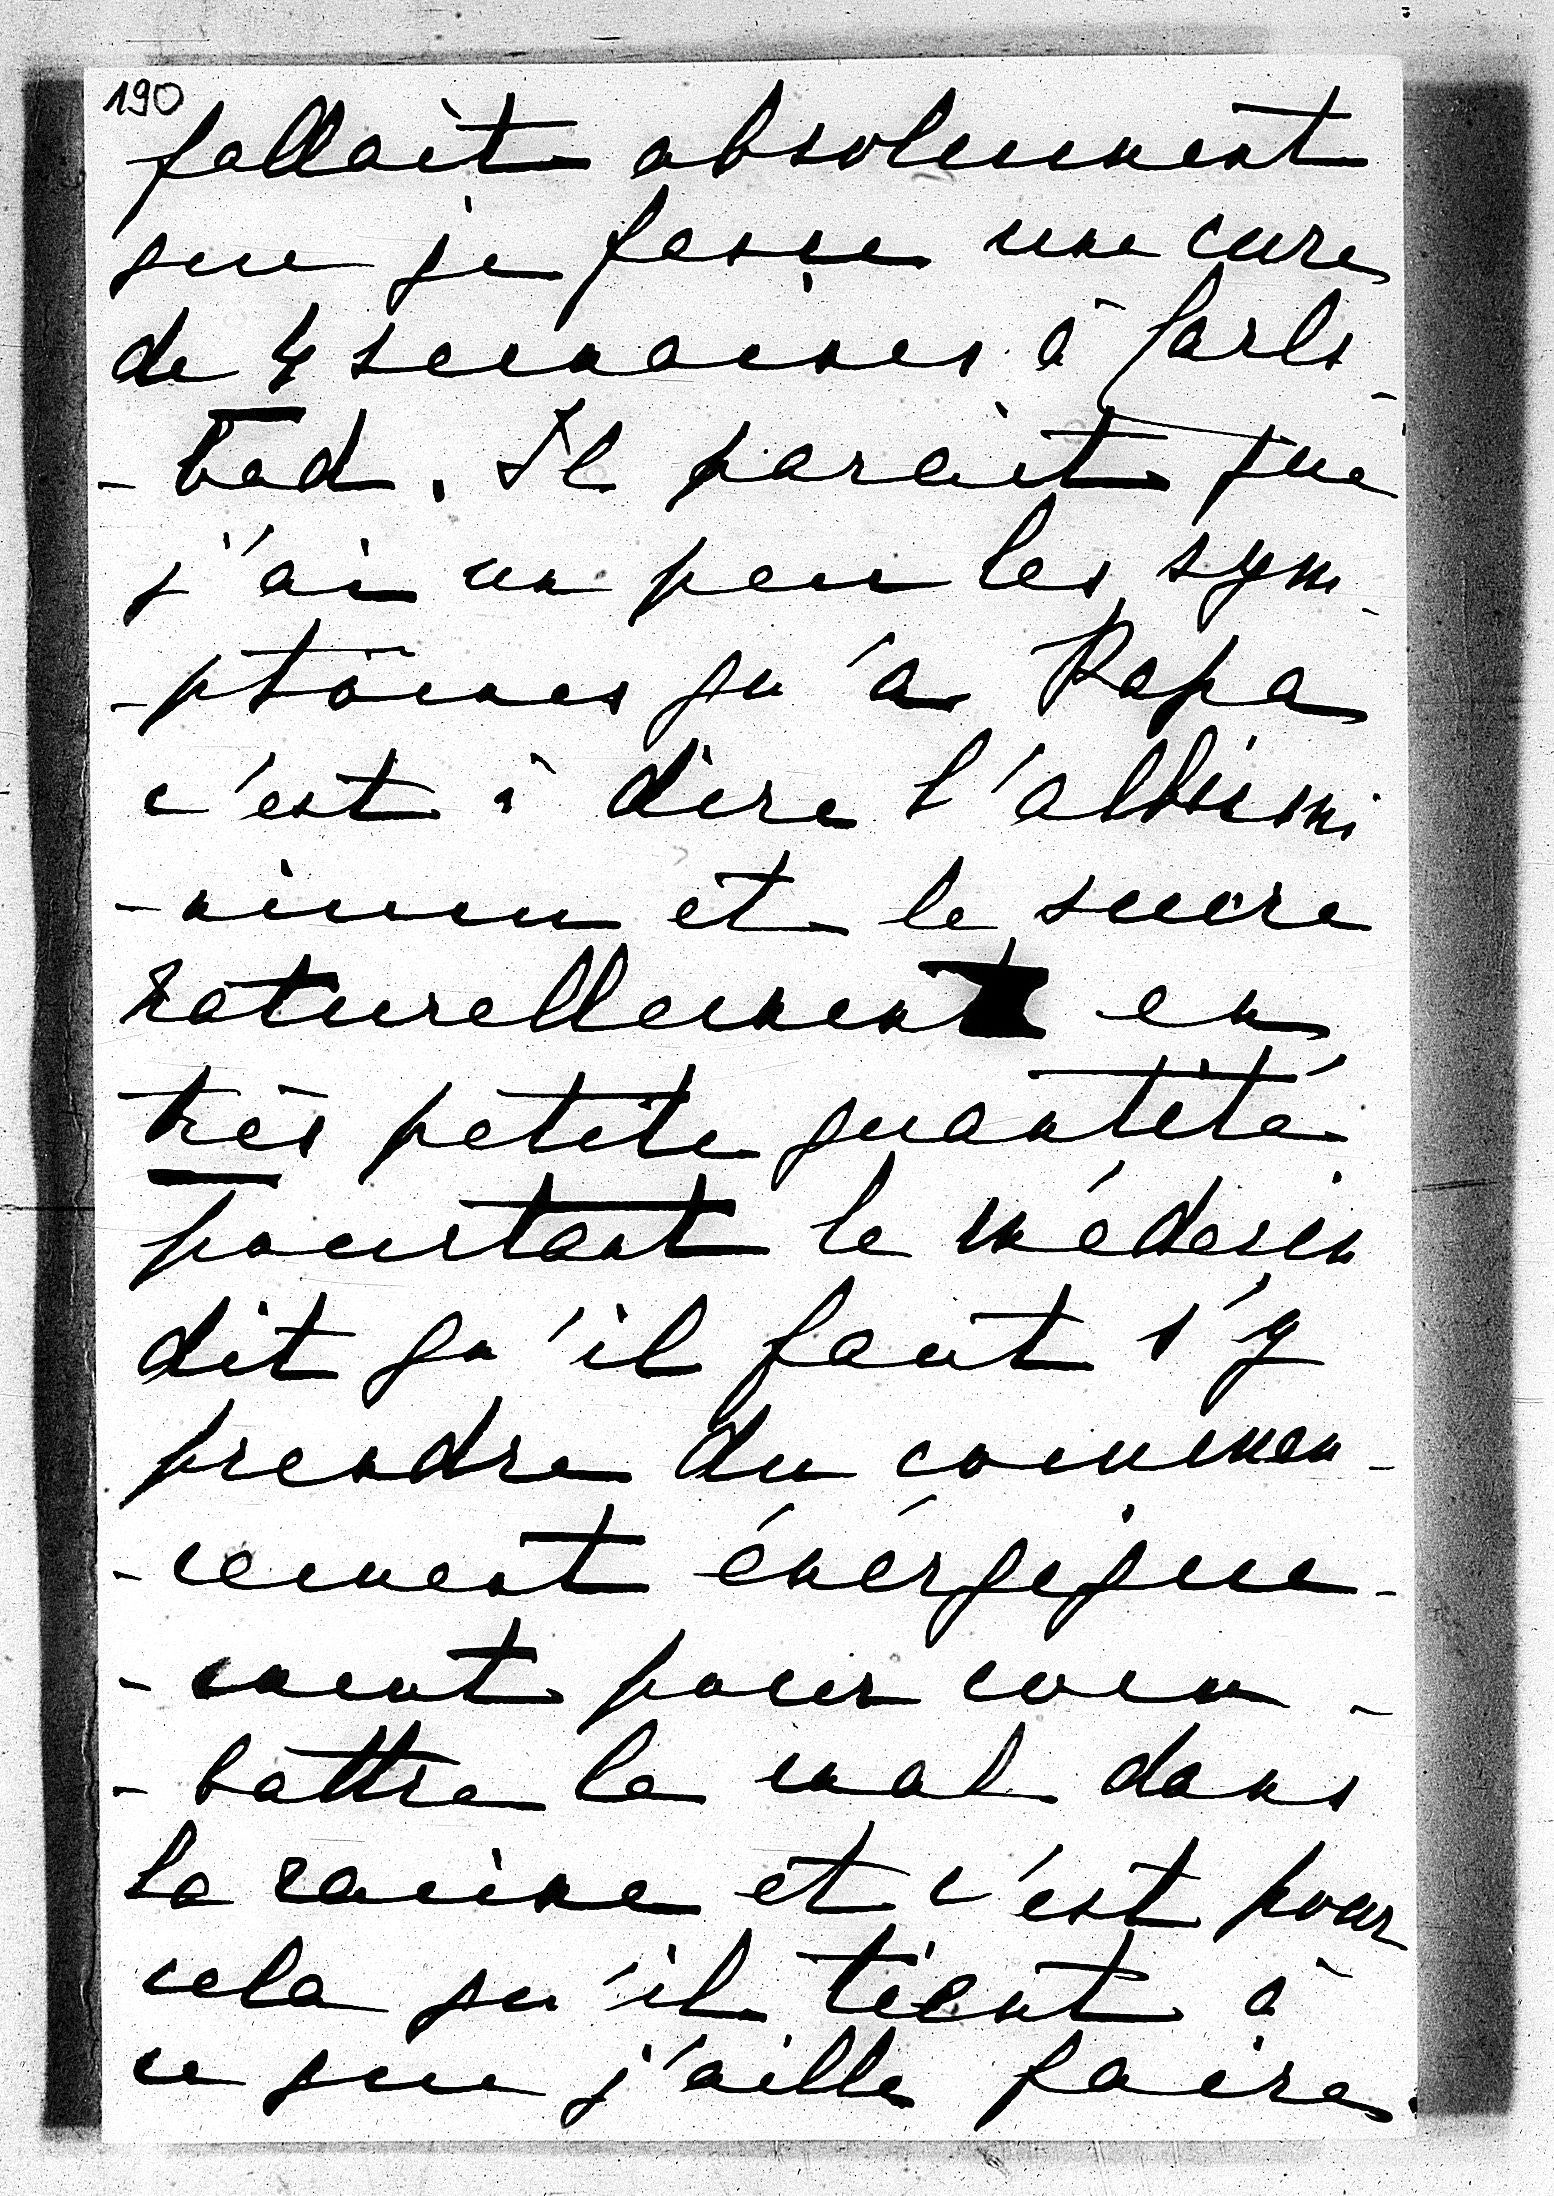 190
fallait absolument
que je fasse une cure
de 4 semaines à Carls-
-bad. Il parait que
j'ai un peu les sym-
-ptômes qu'a Papa
c'est à dire l'albumi
-nimum et le sucre
naturellement en
très petite quantité
pourtant le médecin
dit qu'il faut s'y
prendre du commen-
-cement énérgique-
-ment pour com-
-battre le mal dans
la racine et c'est pour
cela qu'il tient à
ce que j'aille faire